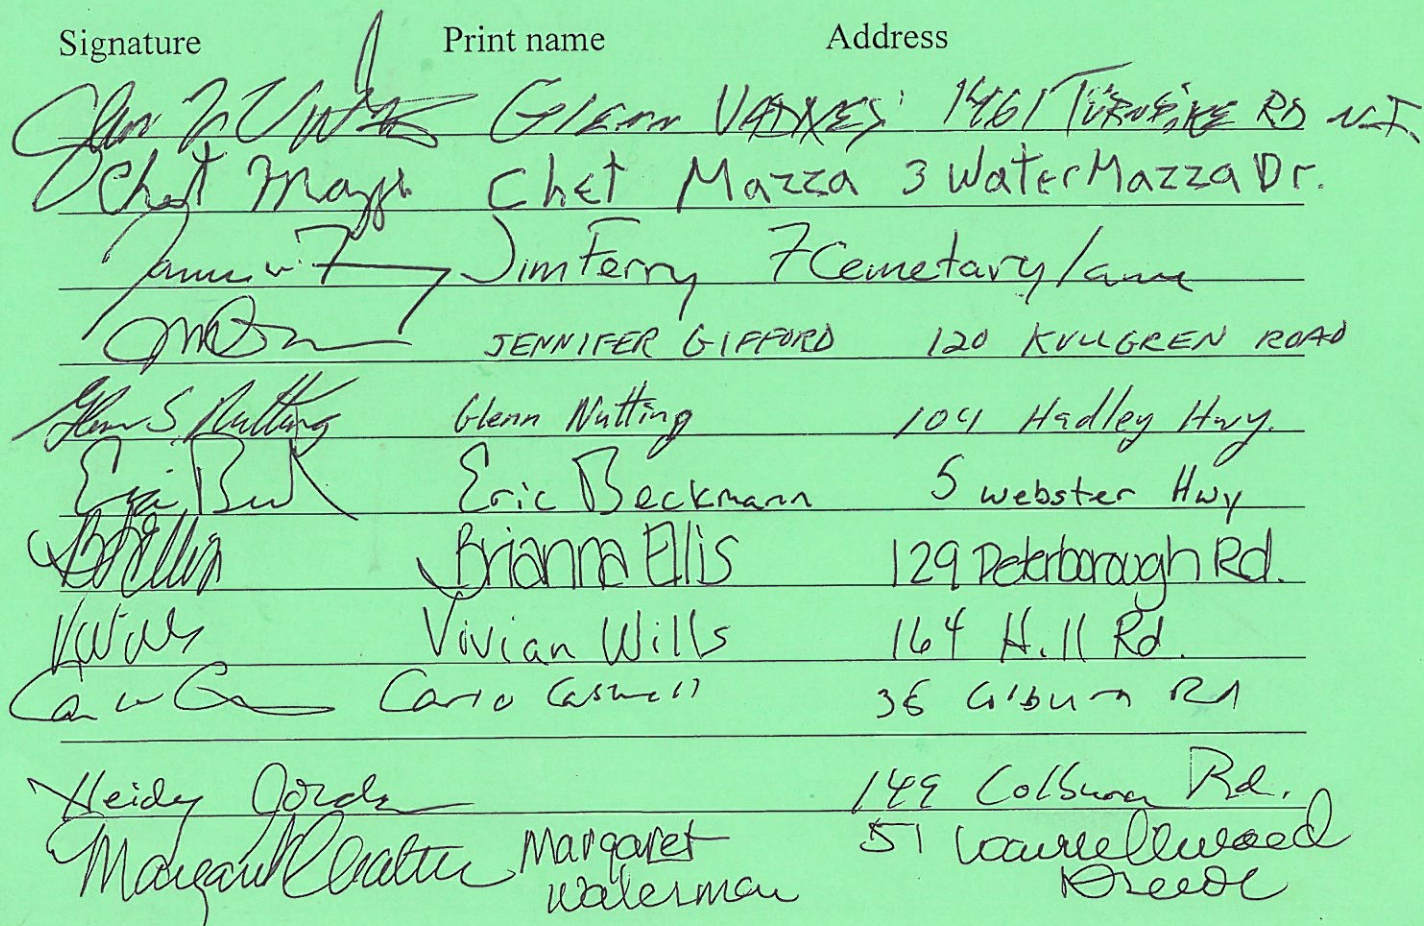 Signature Print name Address
Glenn 1461 Turnpike RD N.I.
Chet Mazza Chet Mazza 3 WaterMazza Dr.
Jim Ferry 7 Cemetary lane
JENNIFER GIFFORD 120 KULLGREN ROAD
Glenn S. Nutting Glenn Nutting 104 Hadley Hwy.
Eric Beckmann 5 webster Hwy
Brianna Ellis 129 Peterborough Rd.
Vivian Wills 164 Hill Rd.
Caswell 36 Colburn Rd
Heidy Jordan 149 Colburn Rd.
Margaret Margaret 51 Laurellwood
Waterman